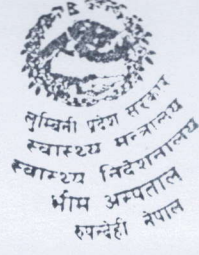 लुम्बिनी प्रदेश सरकार
स्वास्थ्य मन्त्रालय
स्वास्थ्य निर्देशनालय
भीम अस्पताल
रुपन्देही नेपाल